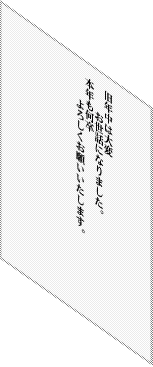 旧年中は大変
お世話になりました。
本年も何卒
よろしくお願いいたします。